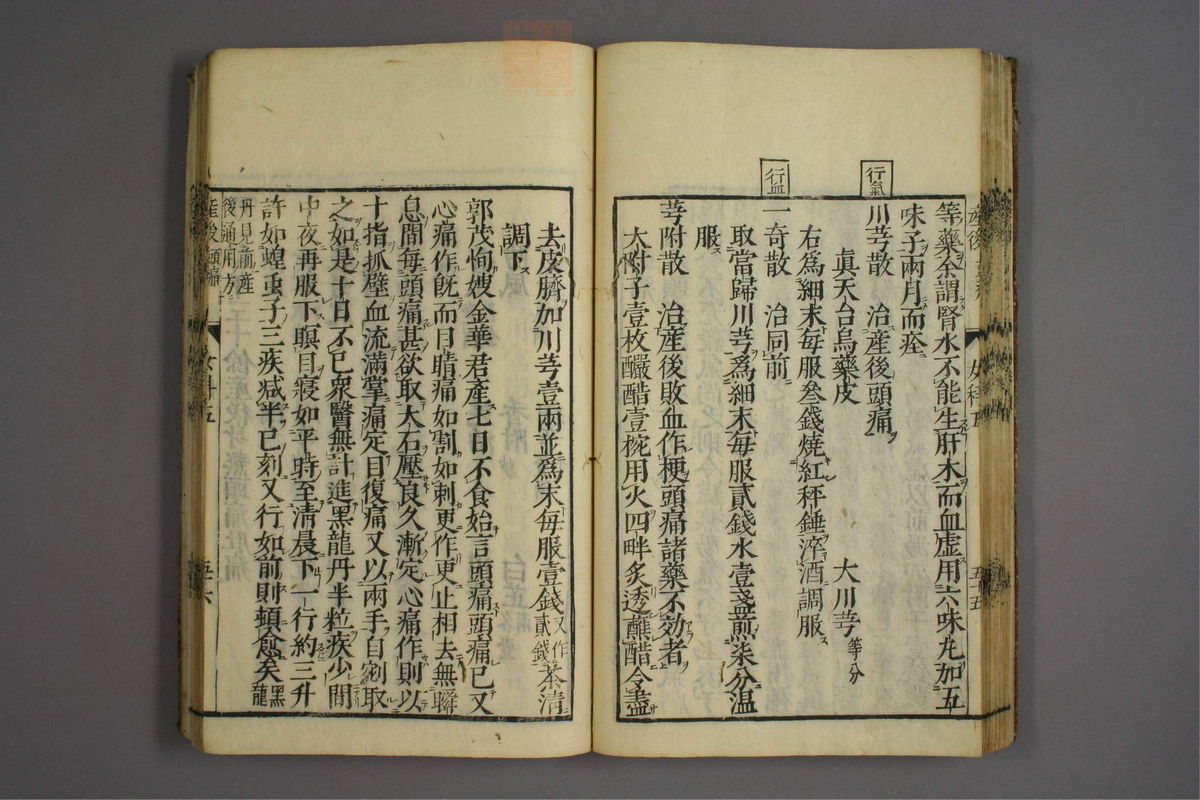 行氣
行血
等藥余謂腎水不能生肝木而血虚用六味丸加五
味子兩月而痊
川芎散　治産後頭痛
眞天台烏藥皮　大川芎等分
右爲細末每服叁錢燒紅秤錘淬酒調服
一奇散　治同前
取當歸川芎爲細末每服貳錢水壹盞煎柒分温
服
芎附散　治産後敗血作梗頭痛諸藥不効者
大附子壹枚釅醋壹椀用火四畔炙透蘸醋令盡
女科五
五十五
去皮臍加川芎壹兩並爲末每服壹錢又作貳錢茶清
調下
郭茂恂嫂金華君產七日不食始言頭痛頭痛已又
心痛作旣而目睛痛如割如刺更作更止相去無瞬
息間每頭痛甚欲取大石壓良久漸定心痛作則以
十指抓壁血流滿掌痛定目復痛又以兩手自剜取
之如是十日不已衆醫無計進黑龍丹半粒疾少間
中夜再服下瞑目寢如平時至清晨下一行約三升
許如蝗虫子三疾减半已刻又行如前則頓愈矣黑龍
丹見前産後通用方
産後頭痛
女科五